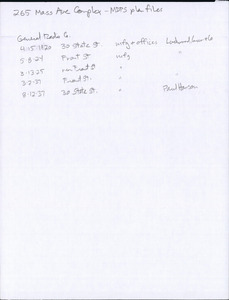 265 Mass Ave Complex – MDPS plan files
General Radio Co.
4.15.1920 30 State St. mfg + offices Lockwood Greene
5.8.24 Front St mfg
8.13.25 Front St. "
3.2.37 Front St. "
8.12.37 30 State St. "